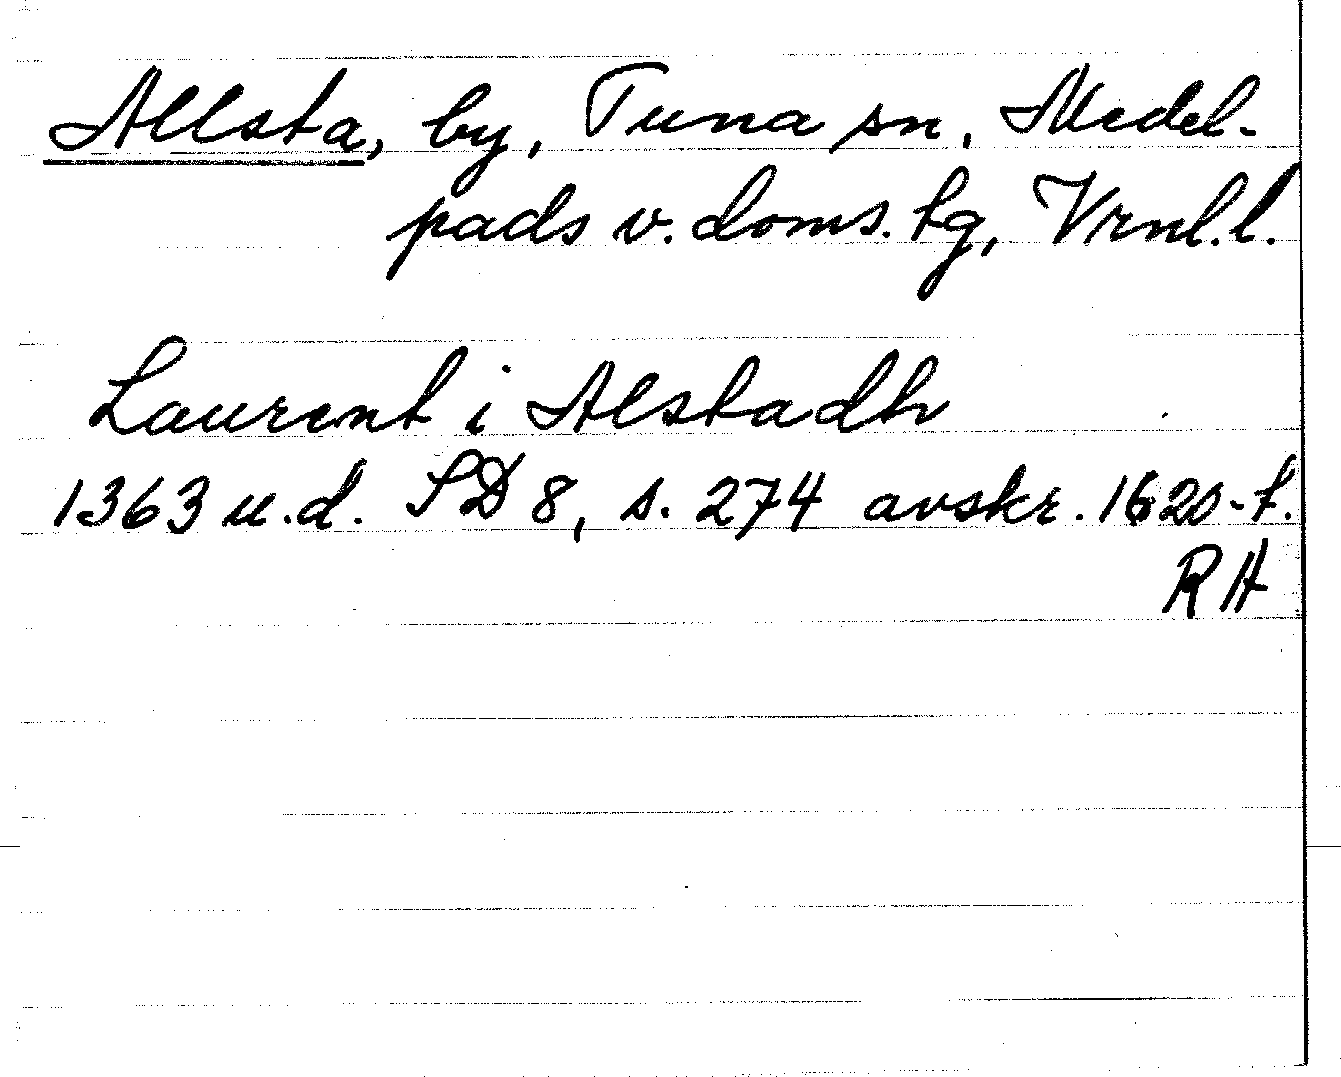 Allsta, by, Tuna sn, Medel-
pads v. doms. tg, Vrnl. l.
Laurent i Alstadh
1363 u.d. SD 8, s. 274 avskr. 1620-t.
RH